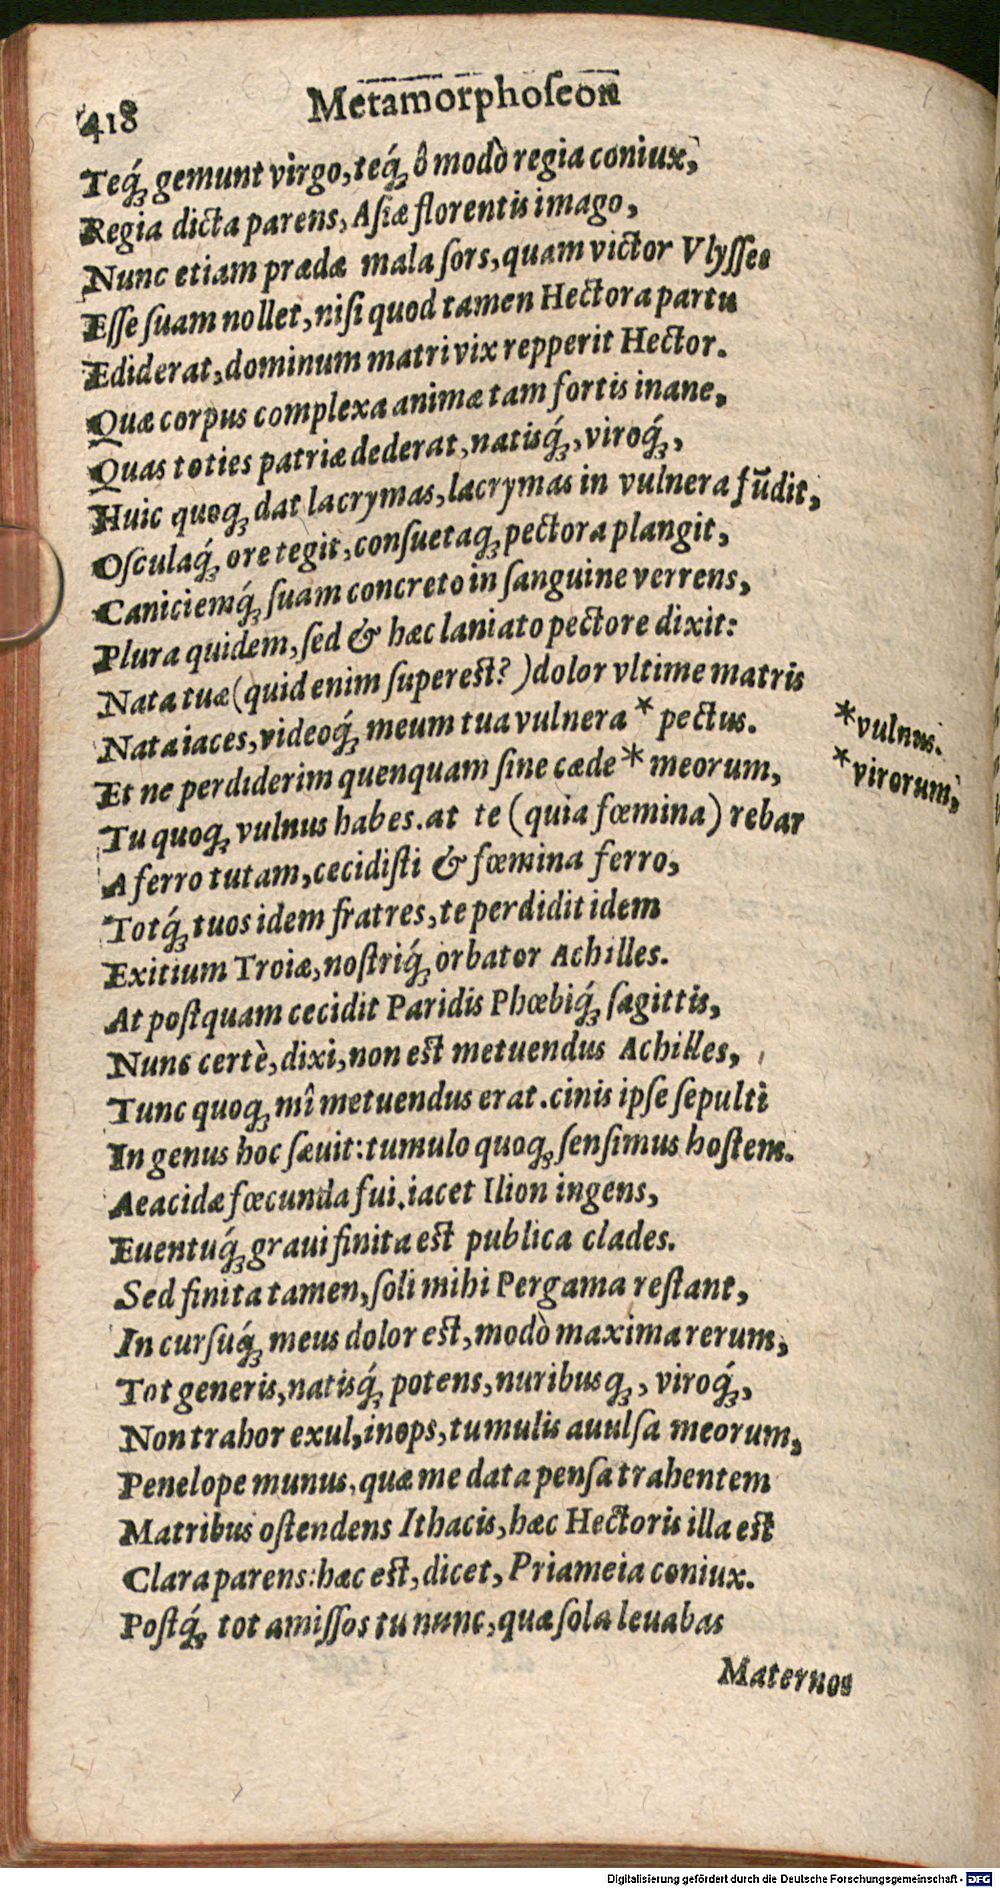 418 Metamorphoseon
Teq́ꝫ gemunt virgo, teq́ꝫ ô modò regia coniux,
Regia dicta parens, Asiæ florentis imago,
Nunc etiam prædæ mala sors, quam victor Vlysses
Esse suam nollet, nisi quod tamen Hectora partu
Ediderat, dominum matri vix repperit Hector.
Quæ corpus complexa animæ tam fortis inane,
Quas toties patriæ dederat, natisq́ꝫ, viroq́ꝫ,
Huic quoqꝫ dat lacrymas, lacrymas in vulnera fūdit,
Osculaq́ꝫ ore tegit, consuetaqꝫ pectora plangit,
Caniciemq́ꝫ suam concreto in sanguine verrens,
Plura quidem, sed & hæc laniato pectore dixit:
Nata tuæ (quid enim superest?) dolor vltime matris
Nata iaces, videoq́ꝫ meum tua vulnera * pectus. *vulnus.
Et ne perdiderim quenquam sine cæde * meorum, *virorum,
Tu quoqꝫ vulnus habes. at te (quia fœmina) rebar
A ferro tutam, cecidisti & fœmina ferro,
Totq́ꝫ tuos idem fratres, te perdidit idem
Exitium Troiæ, nostriq́ꝫ orbator Achilles.
At postquam cecidit Paridis Phœbiq́ꝫ sagittis,
Nunc certè, dixi, non est metuendus Achilles,
Tunc quoqꝫ mî metuendus erat. cinis ipse sepulti
In genus hoc sæuit: tumulo quoqꝫ sensimus hostem.
Aeacidæ fœcunda fui. iacet Ilion ingens,
Euentuq́ꝫ graui finita est publica clades.
Sed finita tamen, soli mihi Pergama restant,
In cursuq́ꝫ meus dolor est, modò maxima rerum,
Tot generis, natisq́ꝫ potens, nuribusqꝫ, viroq́ꝫ,
Non trahor exul, inops, tumulis auulsa meorum,
Penelope munus, quæ me data pensa trahentem
Matribus ostendens Ithacis, hæc Hectoris illa est
Clara parens: hæc est, dicet, Priameia coniux.
Postq́ꝫ tot amissos tu nunc, quæ sola leuabas
Maternos
Digitalisierung gefördert durch die Deutsche Forschungsgemeinschaft - DFG